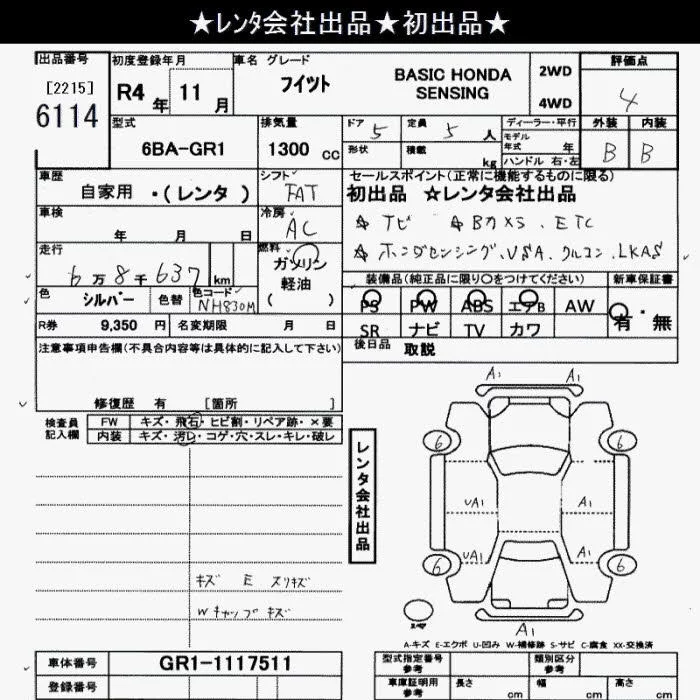 ★レンタ会社出品★初出品★
出品番号 初度登録年月 車名 グレード 評価点
[2215] R4年 11月 フイツト BASIC HONDA SENSING 2WD 4
6114 4WD
型式 排気量 ドア 5 定員 5人 ディーラー・平行 外装 内装
6BA-GR1 1300 cc 形状 積載 kg モデル年式 年 B B
ハンドル 右・左
車歴 シフト セールスポイント(正常に機能するものに限る)
自家用 ・(レンタ) FAT 初出品 ☆レンタ会社出品
車検 冷房 ☆ナビ ☆Bカメラ、ETC
年 月 日 AC ☆ホンダセンシング、VSA、クルコン、LKAS
走行 燃料 装備品(純正品に限り○をつけてください) 新車保証書
6万8千637km ガソリン PS PW ABS エアB AW 有・無
軽油
( )
色 シルバー 色替 色コード NH830M SR ナビ TV カワ
R券 9,350 円 名変期限 月 日 後日品 取説
注意事項申告欄(不具合内容等は具体的に記入して下さい)
修復歴 有 [箇所 ]
検査員記入欄 FW キズ・飛石・ヒビ割・リペア跡・×要
内装 キズ・汚レ・コゲ・穴・スレ・キレ・破レ
レンタ会社出品
A1 A1
6 6
UA1 A1
UA1 A1
6 6
キズ E スリキズ
Wキャップキズ
スペア
A1
A-キズ E-エクボ U-凹み W-補修跡 S-サビ C-腐食 XX-交換済
車体番号 GR1-1117511 型式指定番号 参考 類別区分 参考
登録番号 車庫証明用 参考 長さ cm 幅 cm 高さ cm